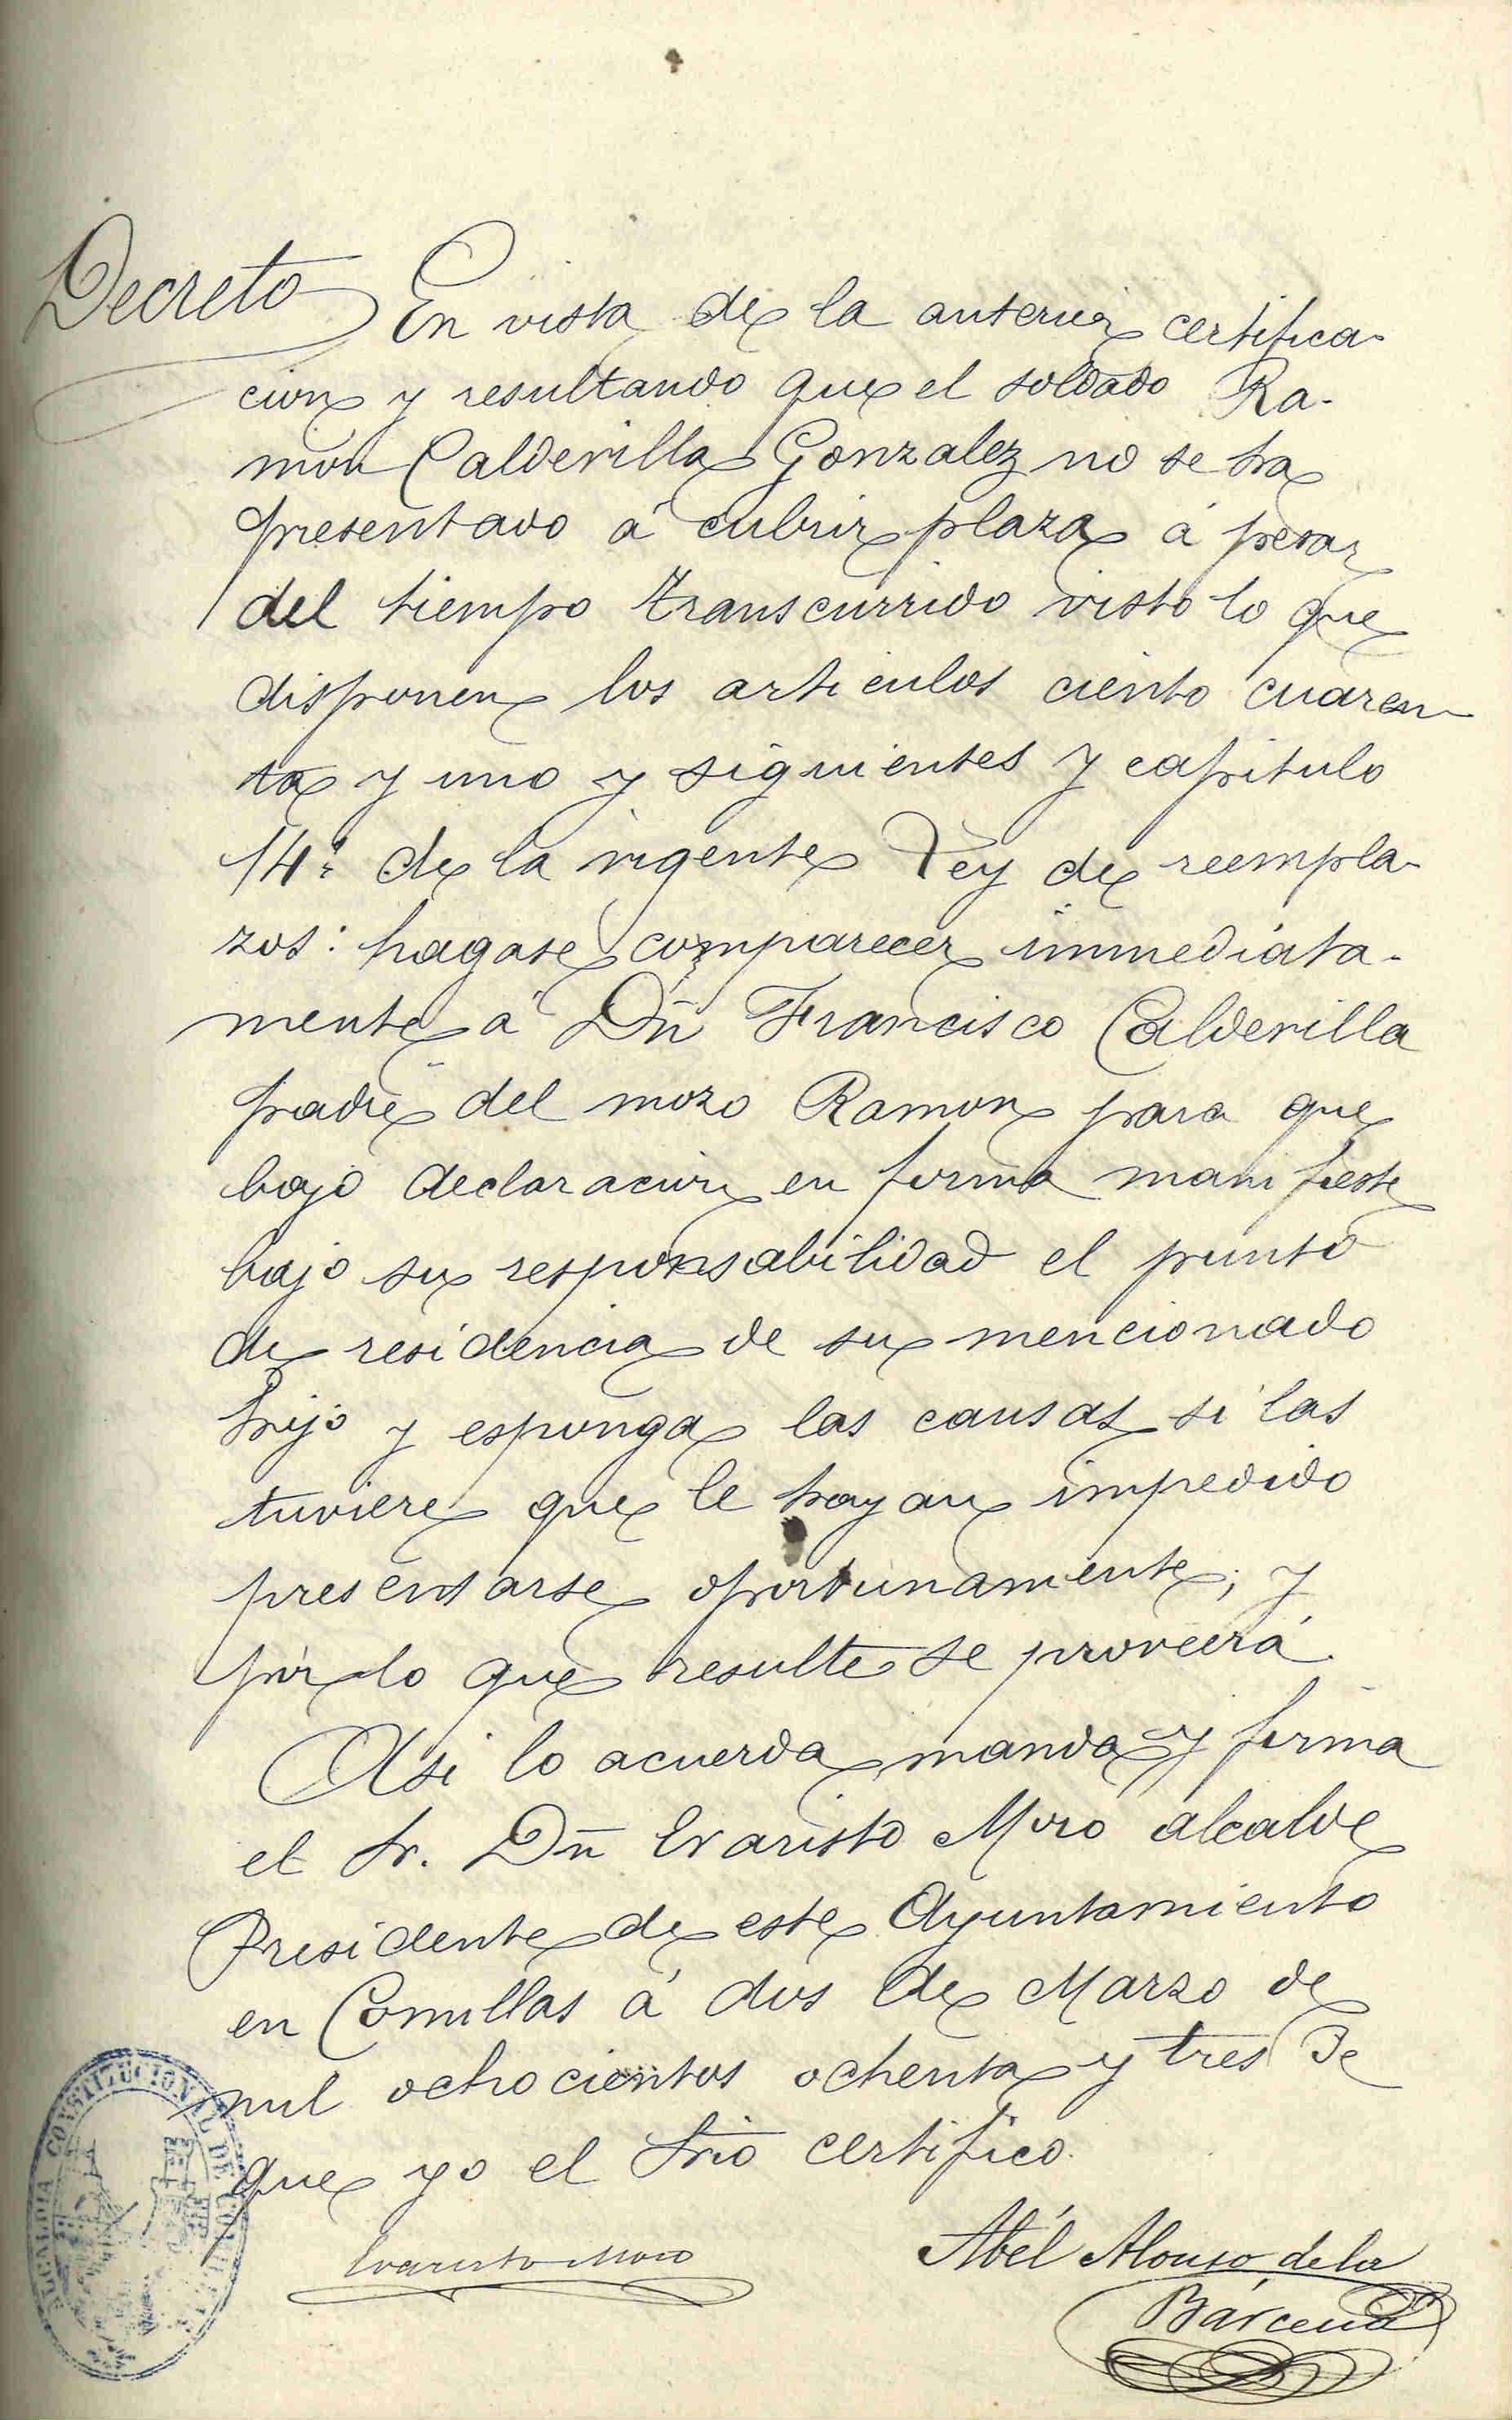 Decreto
En vista de la anterior certifica-
cion y resultando que el soldado Ra-
món Calderilla Gonzalez no se ha
presentado á cubrir plaza á pesar
del tiempo transcurrido visto lo que
disponen los articulos ciento cuaren-
ta y uno y siguientes y capitulo
14º de la vigente Ley de reempla-
zos: hagase comparecer immediata-
mente á Dñ Francisco Calderilla
padre del mozo Ramon para que
bajo declaracion en forma manifieste
bajo su responsabilidad el punto
de residencia de su mencionado
hijo y esponga las causas si las
tuviere que le hayan impedido
presentarse oportunamente; y
por lo que resulte se proveerá.
Asi lo acuerda manda y firma
el Sr. Dñ Evaristo Moro alcalde
Presidente de este Ayuntamiento
en Comillas á dos de Marzo de
mil ochocientos ochenta y tres de
que yo el Srio certifico.
Evaristo Moro
Abél Alonso de la
Bárcena
ALCALDIA CONSTITUCIONAL DE COMILLAS